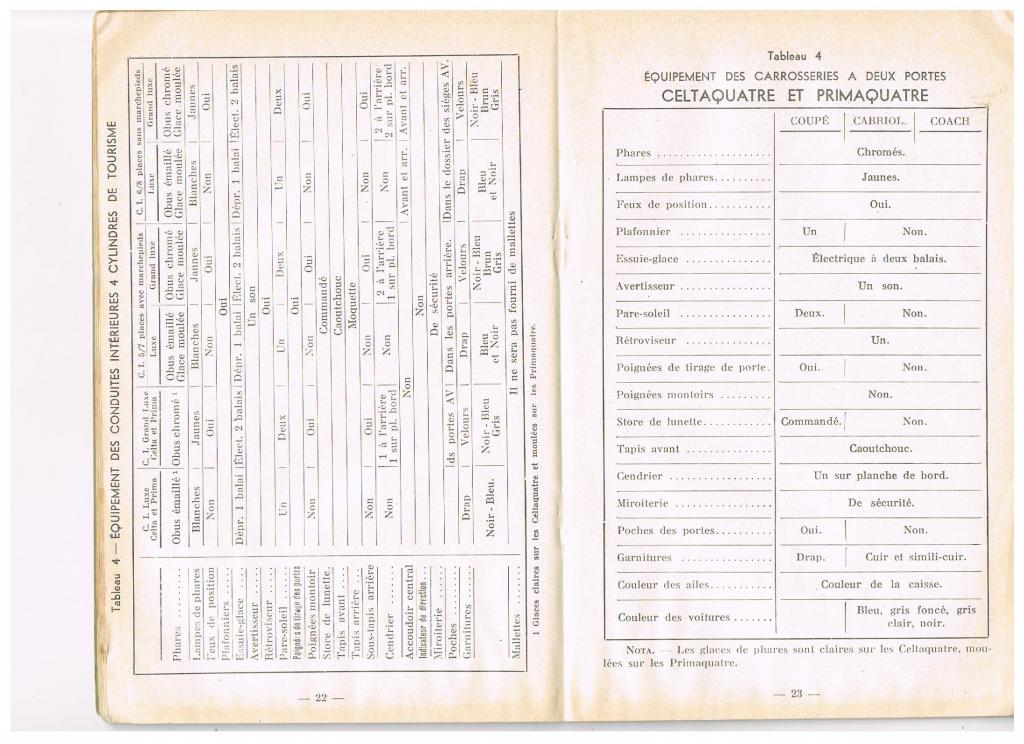 Tableau 4 — ÉQUIPEMENT DES CONDUITES INTÉRIEURES 4 CYLINDRES DE TOURISME
C. I. Luxe Celta et Prima | C. I. Grand Luxe Celta et Prima | C. I. 5/7 places avec marchepieds Luxe | Grand luxe | C. I. 6/8 places sans marchepieds Luxe | Grand luxe
Phares ........ Obus émaillé ¹ | Obus chromé ¹ | Obus émaillé Glace moulée | Obus chromé Glace moulée | Obus émaillé Glace moulée | Obus chromé Glace moulée
Lampes de phares Blanches | Jaunes | Blanches | Jaunes | Blanches | Jaunes
Feux de position Non | Oui | Non | Oui | Non | Oui
Plafonniers ..... Oui
Essuie-glace .... Dépr. 1 balai | Élect. 2 balais | Dépr. 1 balai | Élect. 2 balais | Dépr. 1 balai | Élect. 2 balais
Avertisseur ..... Un son
Rétroviseur ..... Oui
Pare-soleil ..... Un | Deux | Un | Deux | Un | Deux
Poignées de tirage des portes Oui
Poignées montoir Non | Oui | Non | Oui | Non | Oui
Store de lunette. Commandé
Tapis avant ..... Caoutchouc
Tapis arrière .... Moquette
Sous-tapis arrière Non | Oui | Non | Oui | Non | Oui
Cendrier ........ Non | 1 à l'arrière 1 sur pl. bord | Non | 2 à l'arrière 1 sur pl. bord | Non | 2 à l'arrière 2 sur pl. bord
Accoudoir central Non | Avant et arr. | Avant et arr.
Indicateur de direction ... Non
Miroiterie ...... De sécurité
Poches ......... ds portes AV | Dans les portes arrière. | Dans le dossier des sièges AV.
Garnitures ...... Drap | Velours | Drap | Velours | Drap | Velours
Noir - Bleu. | Noir - Bleu Gris | Bleu et Noir | Noir - Bleu Brun Gris | Bleu et Noir | Noir - Bleu Brun Gris
Mallettes ....... Il ne sera pas fourni de mallettes
1 Glaces claires sur les Celtaquatre et moulées sur les Primaquatre.
— 22 —
Tableau 4
ÉQUIPEMENT DES CARROSSERIES A DEUX PORTES
CELTAQUATRE ET PRIMAQUATRE
COUPÉ | CABRIOL. | COACH
Phares .................... Chromés.
Lampes de phares.......... Jaunes.
Feux de position........... Oui.
Plafonnier ................ Un | Non.
Essuie-glace .............. Électrique à deux balais.
Avertisseur ............... Un son.
Pare-soleil ............... Deux. | Non.
Rétroviseur ............... Un.
Poignées de tirage de porte. Oui. | Non.
Poignées montoirs ......... Non.
Store de lunette............ Commandé. | Non.
Tapis avant ............... Caoutchouc.
Cendrier .................. Un sur planche de bord.
Miroiterie ................ De sécurité.
Poches des portes.......... Oui. | Non.
Garnitures ................ Drap. | Cuir et simili-cuir.
Couleur des ailes........... Couleur de la caisse.
Couleur des voitures ....... Bleu, gris foncé, gris
clair, noir.
NOTA. — Les glaces de phares sont claires sur les Celtaquatre, mou-
lées sur les Primaquatre.
— 23 —